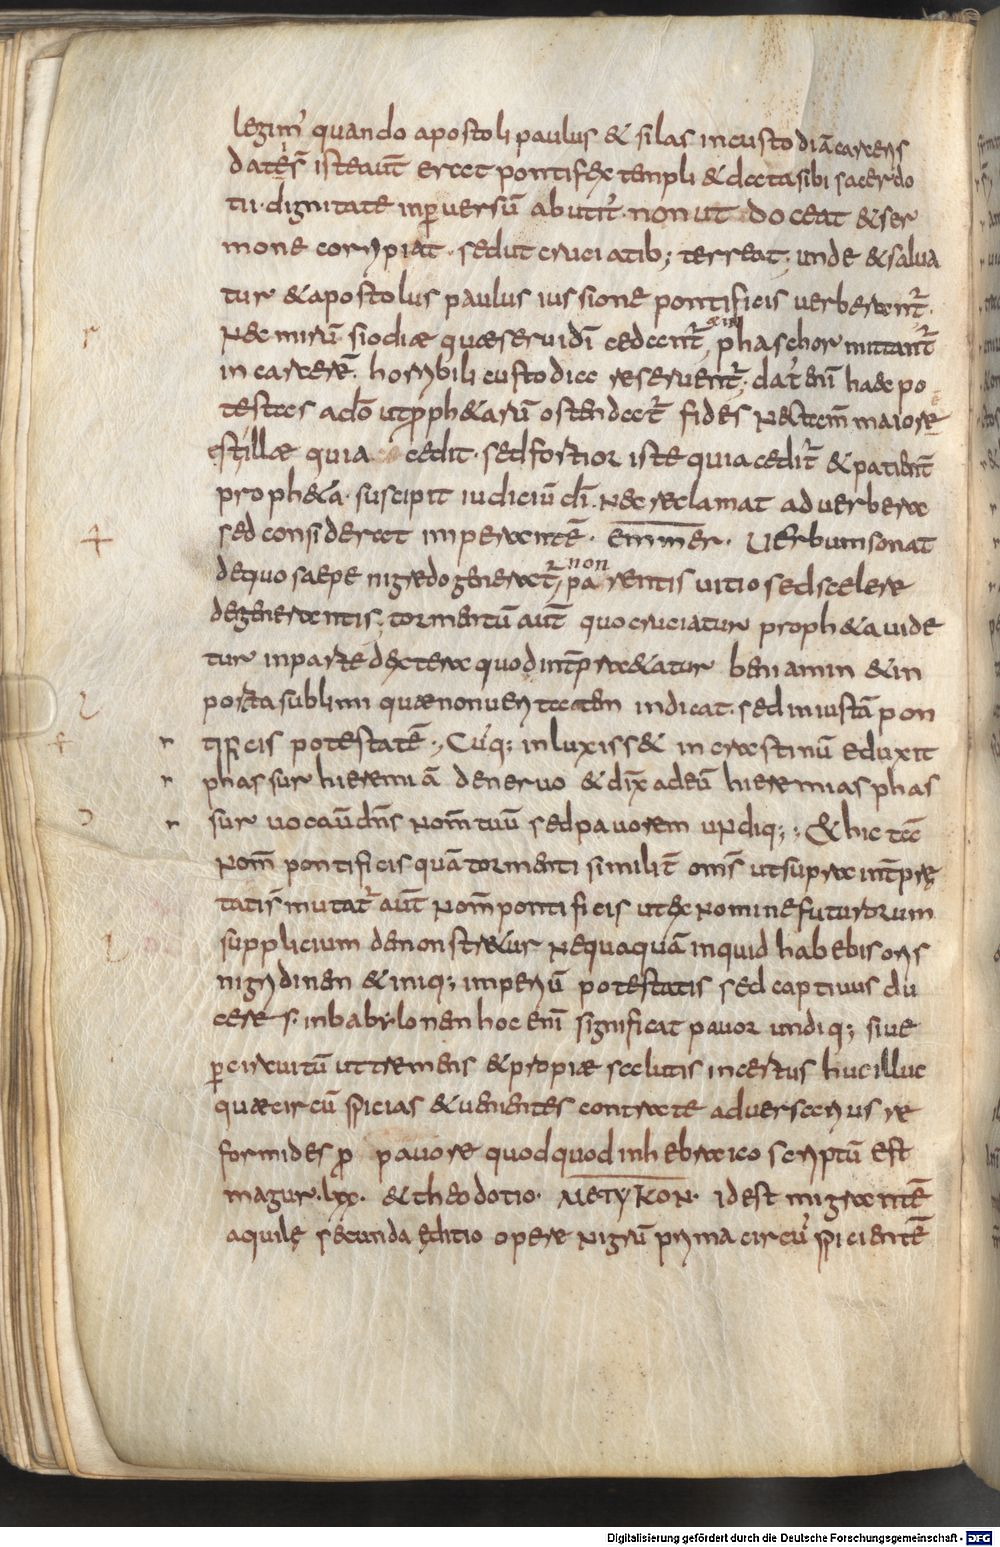 legim̄ quando apostoli paulus & silas in custodiā carceris
datēs isteaut̄ erat pontifex templi & data sibi sacerdo
tii dignitate inꝑuersū abutit̄ · non ut doceat & ser
mone corripiat · sed ut cruciatib; terreat; unde & salua
tur & apostolus paulus iussione pontificis uerberant̄ ·
Nec mirū si odiae quae seruidī cedant̄ phaschor mittant̄
in carcerē · horribili custodiae reseruent̄; dat̄ enī haec po
testas adō ut prophetarū ostendat̄ fides
est illae quia cedit · sed fortior iste quia cedit̄ & patient̄
propheta · suscipit iudiciū dī · Nec reclamat aduerbera
sed considerat imperantē · emmer · Uerbum sonat
dequo saepe nigredo generat̄, non parentis uitio sed scelere
degenerantis; tormentū aut̄ quo cruciatur propheta uide
tur in parte dextera quod int̄pretatur beniamin & in
porta sublimi quae non ueritatem indicat · sed iniustā pon
tificis potestatē ·, Cūq; inluxisset in crastinū eduxit
phassur hieremiā de neruo & dix̄ adeū hieremias phas
sur uocau̅ dn̄s nom̄ tuū sed pauorem undiq; : & hic &iā
nom̄ pontificis quā tormenti similit̄ om̄s ut supra int̄prę
tatis mutat̄ aut̄ nom̄ pontificis ut ex nomine futurorum
supplicium demonstretur nequaquā inquid habebis
nigridinem & iniq; imperiū potestatis sed captiuus du
ceres · in babylonem hoc enī significat pauor undiq; siue
ꝑ circuitū ut tremens & propriae salutis incertus huc illuc
quae circū spicias & uenientes contra te aduersarius re
formides pro pauore quod quod in hebraico scriptū est
magur · lxx · & theodotio · METYKON · id est migrantē
aquilę secunda editio opere Nigrū prima circū spicientē
Digitalisierung gefördert durch die Deutsche Forschungsgemeinschaft - DFG